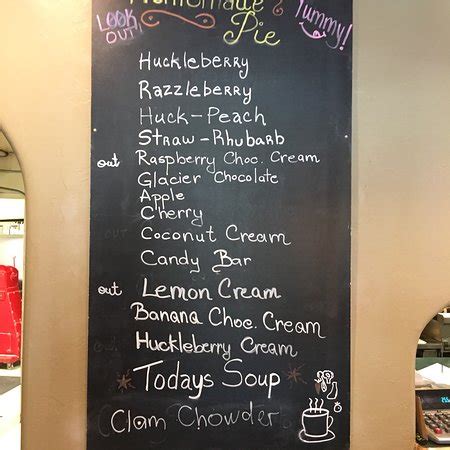 LOOK OUT!
Homemade Pie
Yummy!
Huckleberry
Razzleberry
Huck-Peach
Straw-Rhubarb
out Raspberry Choc. Cream
Glacier Chocolate
Apple
Cherry
Coconut Cream
Candy Bar
out Lemon Cream
Banana Choc. Cream
Huckleberry Cream
Todays Soup
Clam Chowder